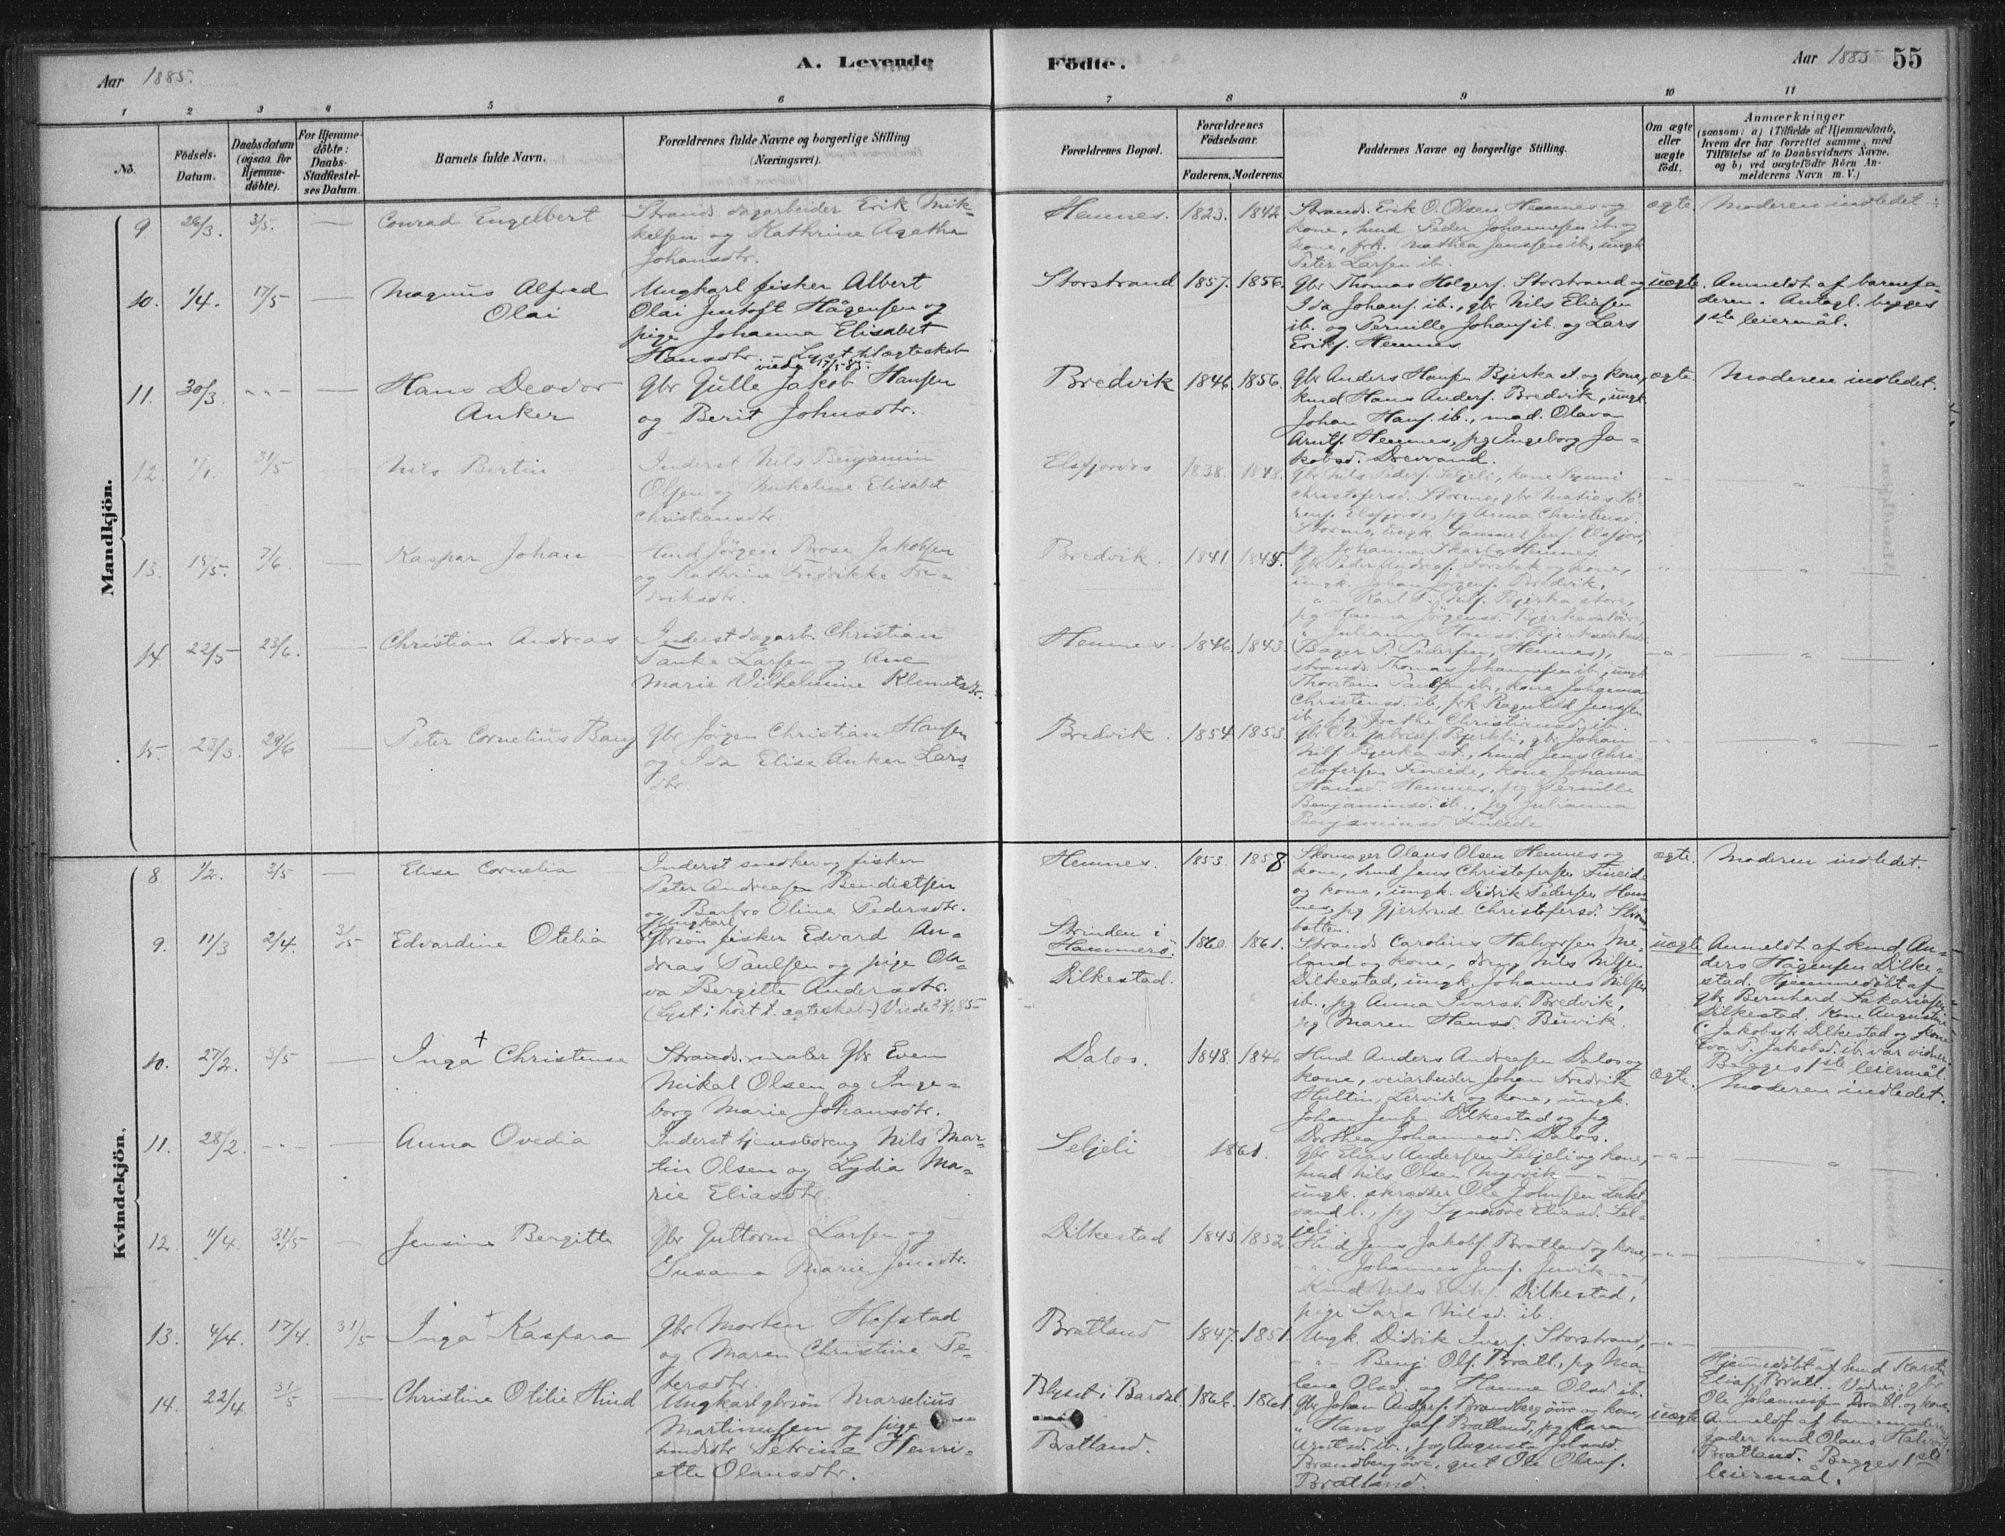 Aar 1885.
A. Levende Födte.
Aar 1885
55
1 2 3 4 5 6 7 8 9 10 11
No.
Födsels-Datum.
Daabsdatum (ogsaa for Hjemme-döbte).
For Hjemme-döbte: Daabs-Stadfæstel-ses Datum.
Barnets fulde Navn.
Forældrenes fulde Navne og borgerlige Stilling (Næringsvei).
Forældrenes Bopæl.
Forældrenes Födselsaar.
Faderens. Moderens.
Faddernes Navne og borgerlige Stilling.
Om ægte eller uægte födt.
Anmærkninger
(saasom: a) i Tilfælde af Hjemmedaab, hvem der har forrettet samme, med Tilföielse af to Daabsvidners Navne, og b) ved uægtefödte Börn An-melderens Navn m. V.)
Mandkjön.
9 26/3. 3/5. — Conrad Engelbert
Strands. dagarbeider Erik Mik-
kelsen og Kathrine Agatha
Johansdtr.
Hemnes. 1823. 1842.
Strands. Erik O. Olsen Hemnes og
kone, hmd Peder Johannesen ib. og
kone, frk. Mathea Jenssen ib., ungk.
Peter Larsen ib.
ægte. Moderen indledet
10. 1/4. 17/5 — Magnus Alfred
Olai
Ungkarl fisker Albert
Olai Jentoft Hågensen og
pige Johanna Elisabet
Hansdtr. — Lyst til ægteskab
viede 17/5 85.
Storstrand 1857. 1856.
Gbr Thomas Holgers. Storstrand og
Ida Johans. ib., gbr Nils Eliasen
ib. og Pernille Johans. ib. og Lars
Eriks. Hemnes
uægte. Anmeldt af barnefa-
deren. Antagl. begges
1ste leiermål.
11. 30/3. -"- — Hans Deodor
Anker
Gbr Gulle Jakob Hansen
og Berit Johnsdtr.
Bredvik 1846. 1856.
Gbr Anders Hansen Bjerka st. og kone,
hmd Hans Anders. Bredvik, ungk.
Johan Hans. ib., mad. Olava
Arnts. Hemnes, pg Ingeborg Ja-
kobsd. Drevvand.
ægte. Moderen indledet.
12. 1/1. 31/5 — Nils Bertin
Inderst Nils Benjamin
Olsen og Mikeline Elisabet
Christiansdtr.
Elsfjordos 1838. 1848.
Gbr Nils Peders. Seljeli, kone Synni
Christofersd. Stormo, gbr Matias Sö-
rens. Elsfjordos, pg Anna Christensd.
Stormo, ungk. Sammel Jens. Elsfjord,
pg Johanna Hemnes.
13. 15/5. 7/6. — Kaspar Johan —
Hmd Jörgen Brose Jakobsen
og Kathrine Fredrikke Fre-
driksdtr.
Bredvik. 1841. 1845.
Gbr Peder Andreas. Forsbak og kone,
ungk. Johan Jörgens. Bredvik,
-"- Karl F. Nils. Bjerka store,
pg Hanna Jörgensd.
" Julianna Hansd.
14. 22/5 23/6. — Christian Andreas
Inderst dagarb. Christian
Tanke Larsen og Ane
Marie Vilhelmine Klemetsdtr.
Hemnes. 1846. 1843.
(Bager P. Pedersen, Hemnes),
strands. Thomas Johannesen ib., ungk.
Thorstein Paulsen ib., kone Johanna
Christensd. ib., frk Ragnhild Jenssen
ib., pg Grethe Christiansd. ib.
15. 23/3. 29/6 — Peter Cornelius Bang
Gbr Jörgen Christian Hansen
og Ida Elise Anker Lars-
dtr.
Bredvik. 1854 1853.
Gbr Ole Jakobs. Bjerkli, gbr Johan
Nils. Bjerka st., hmd Jens Chri-
stofersen Fineide, kone Johanna
Hansd. Hemnes, pg Pernille
Benjaminsd. ib., pg Julianna
Benjaminsd. Fineide
Kvindekjön.
8. 1/2. 3/5 — Elise Cornelia
Inderst snedker og fisker
Peter Andreasen Bendictsen
og Barbro Oline Pedersdtr.
Hemnes. 1853. 1858
Skomager Olaus Olsen Hemnes og
kone, hmd Jens Christofersen Fineide
og kone, ungk. Didrik Pedersen Hem-
nes, pg Gjertrud Christofersd. Ström-
botten.
ægte. Moderen indledet.
9. 11/3 2/4. 3/5 Edvardine Otelia
Ungkarl
Gbrsön fisker Edvard An-
dreas Paulsen og pige Ola-
va Bergitte Andersdtr.
(Lyst i hört t. ægteskab) Viede 23/6 85
Strinden i
Hammerö.
Dilkestad. 1860. 1861.
Strands. Carolius Halvorsen Me-
land og kone, dreng Nils Nilsen
Dilkestad, ungk. Johannes Nilsen
ib., pg Anna Ivarsd. Bredvik,
pg Maren Hansd. Buvik.
uægte Anmeldt af hmd An-
ders Hågensen Dilke-
stad. Hjemmedöbt af
gbr Bernhard Sakariasen
Dilkestad. Kone Augustine
C. Jakobsdtr Dilkestad og kone
Eva P. Jakobsd. ib. var vidner.
Begges 1ste leiermål.
10. 27/2. 3/5 — Inga + Christense
Strands. maler Gbr Even
Mikal Olsen og Inge-
borg Marie Johansdtr.
Dalos. 1848. 1846
Hmd Anders Andreasen Dalos og
kone, veiarbeider Johan Fredrik
Hultin, Lervik og kone, ungk.
Johan Jens. Dilkestad og pg
Dorthea Johannesd. Dalos.
ægte. Moderen indledet.
11. 28/2. -"- — Anna Ovedia
Inderst tjenestedreng Nils Mar-
tin Olsen og Lydia Ma-
rie Eliasdtr.
Seljeli 1861.
Gbr Elias Andersen Seljeli og kone,
hmd Nils Olsen Myrvik -"-
ungk. skrædder Ole Johnsen
pg Synnöve Eliasd. Sel-
jeli.
12. 11/4. 31/5 — Jensine Bergitte
Gbr Guttorm Larsen og
Susanna Marie Jensdtr.
Dilkestad 1843. 1852
Hmd Jens Jakobs. Bratland og kone,
-"- Johannes Jens. -"-
hmd Nils Eriks. Dilkestad,
pige Sara Nilsd. ib.
13. 4/4. 17/4. 31/5 Inga + Kaspara
Gbr Morten Hofstad
og Maren Christine Pe-
dersdtr.
Bratland 1847. 1851.
Ungk. Didrik Ivers. Storstrand,
-"- Benj. Ols. Bratl., pg Ma-
lene Olsd. og Hanna Olsd. ib.
Hjemmedöbt af hmd Karsten
Elias. Bratl. Vidner: gbr
Ole Johannesen Bratl. og kone.
14. 22/4 31/5 — Christine Otilie Hind
Ungkarl gbrsön Marselius
Martinusen og pige
hmdsdtr Petrina Henri-
ette Olausdtr.
i Bardal
Bratland. 1866. 1861.
Gbr Johan Anders. Brandberg övre og kone,
" Hans Jens. Bratland, pg Karen
Arntsd. ib., pg Augusta Johansd.
Brandberg övre, gut Ole Olaus.
Bratland.
uægte Anmeldt af barnemoderens
fader hmd Olaus Halvors.
Bratland. Begges 1ste
leiermål.